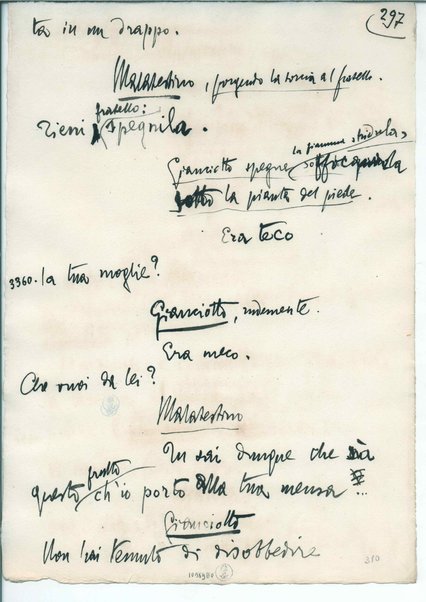 297
ta in un drappo.
Malatestino, porgendo la torcia al fratello.
fratello:
Tieni Spegnila.
la fiamma stridula,
Gianciotto spegne soffocandola
sotto la pianta del piede.
Era teco
3360. la tua moglie?
Gianciotto, rudemente.
Era meco.
Che vuoi da lei?
Malatestino
Tu sai dunque che sia
frutto
questo ch'io porto alla tua mensa...
Gianciotto
Non hai temuto di disobbedire
310